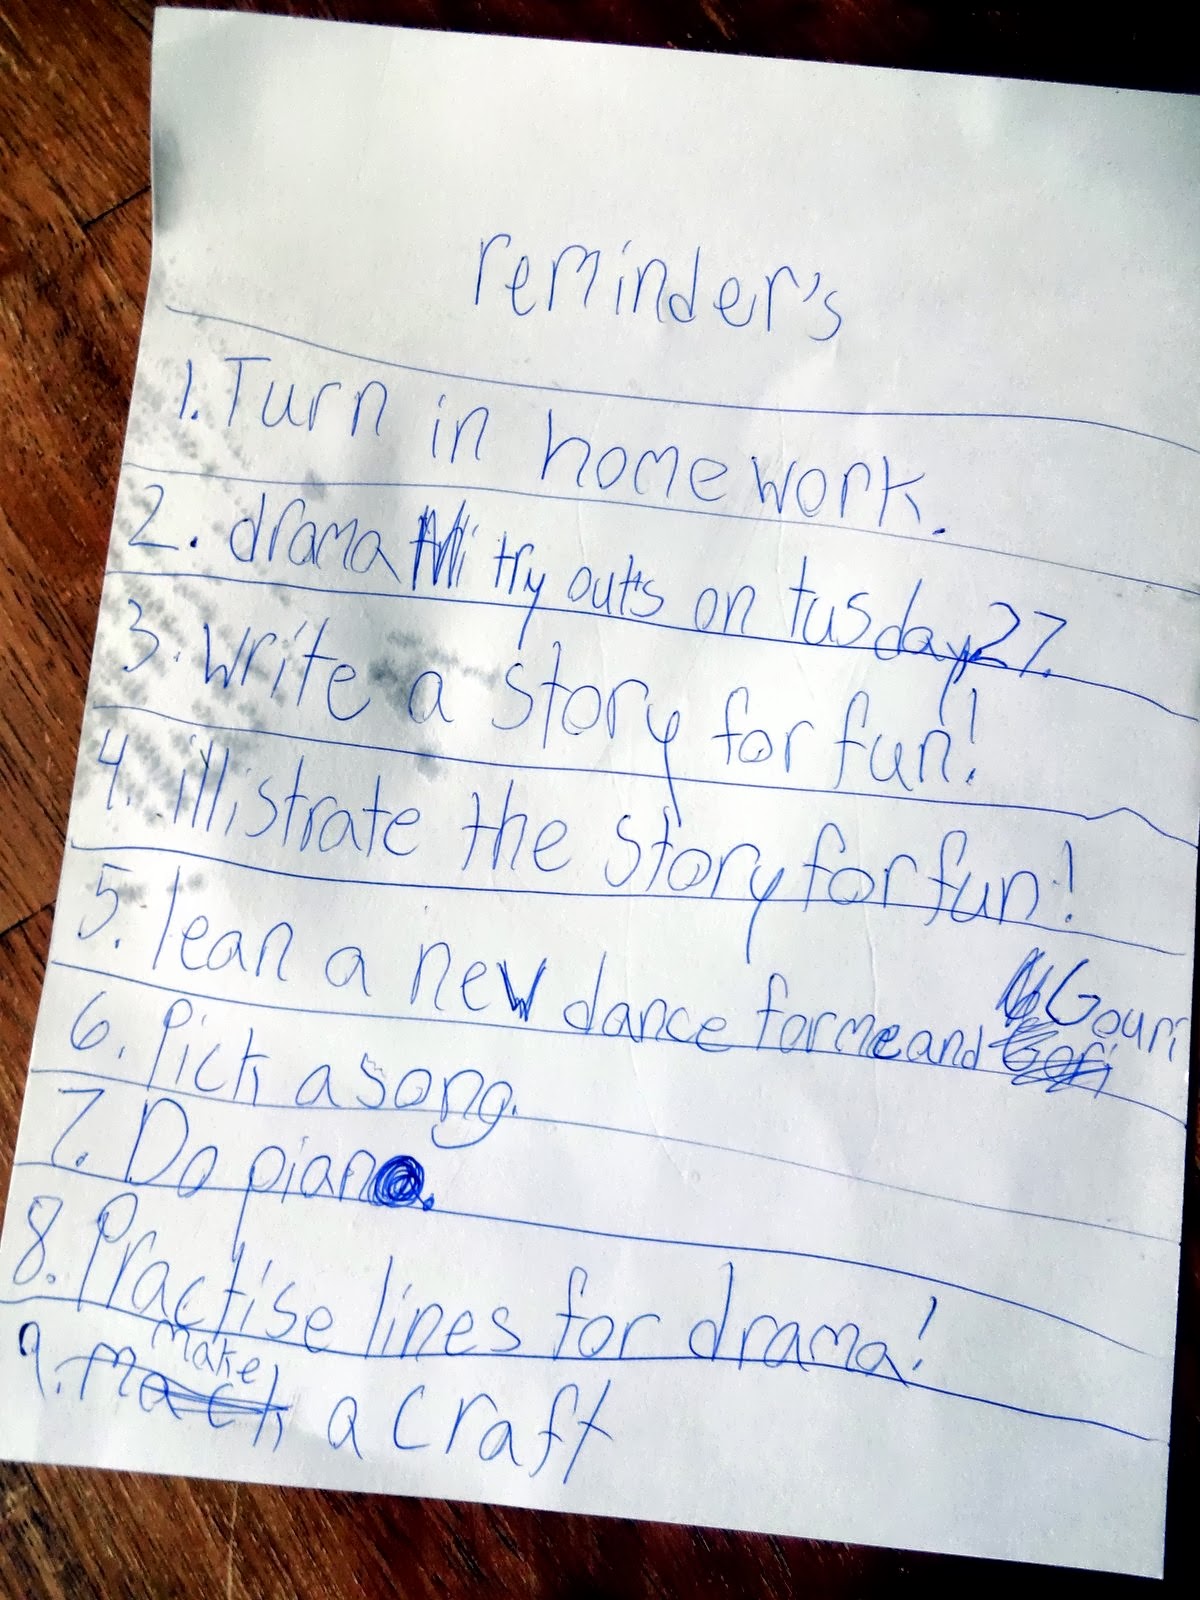 reminder's
1. Turn in homework.
2. drama try outs on tusday 27.
3. Write a story for fun!
4. illistrate the story for fun!
5. lean a new dance for me and Gouri
6. Pick a song.
7. Do piano.
8. Practise lines for drama!
9. make a craft